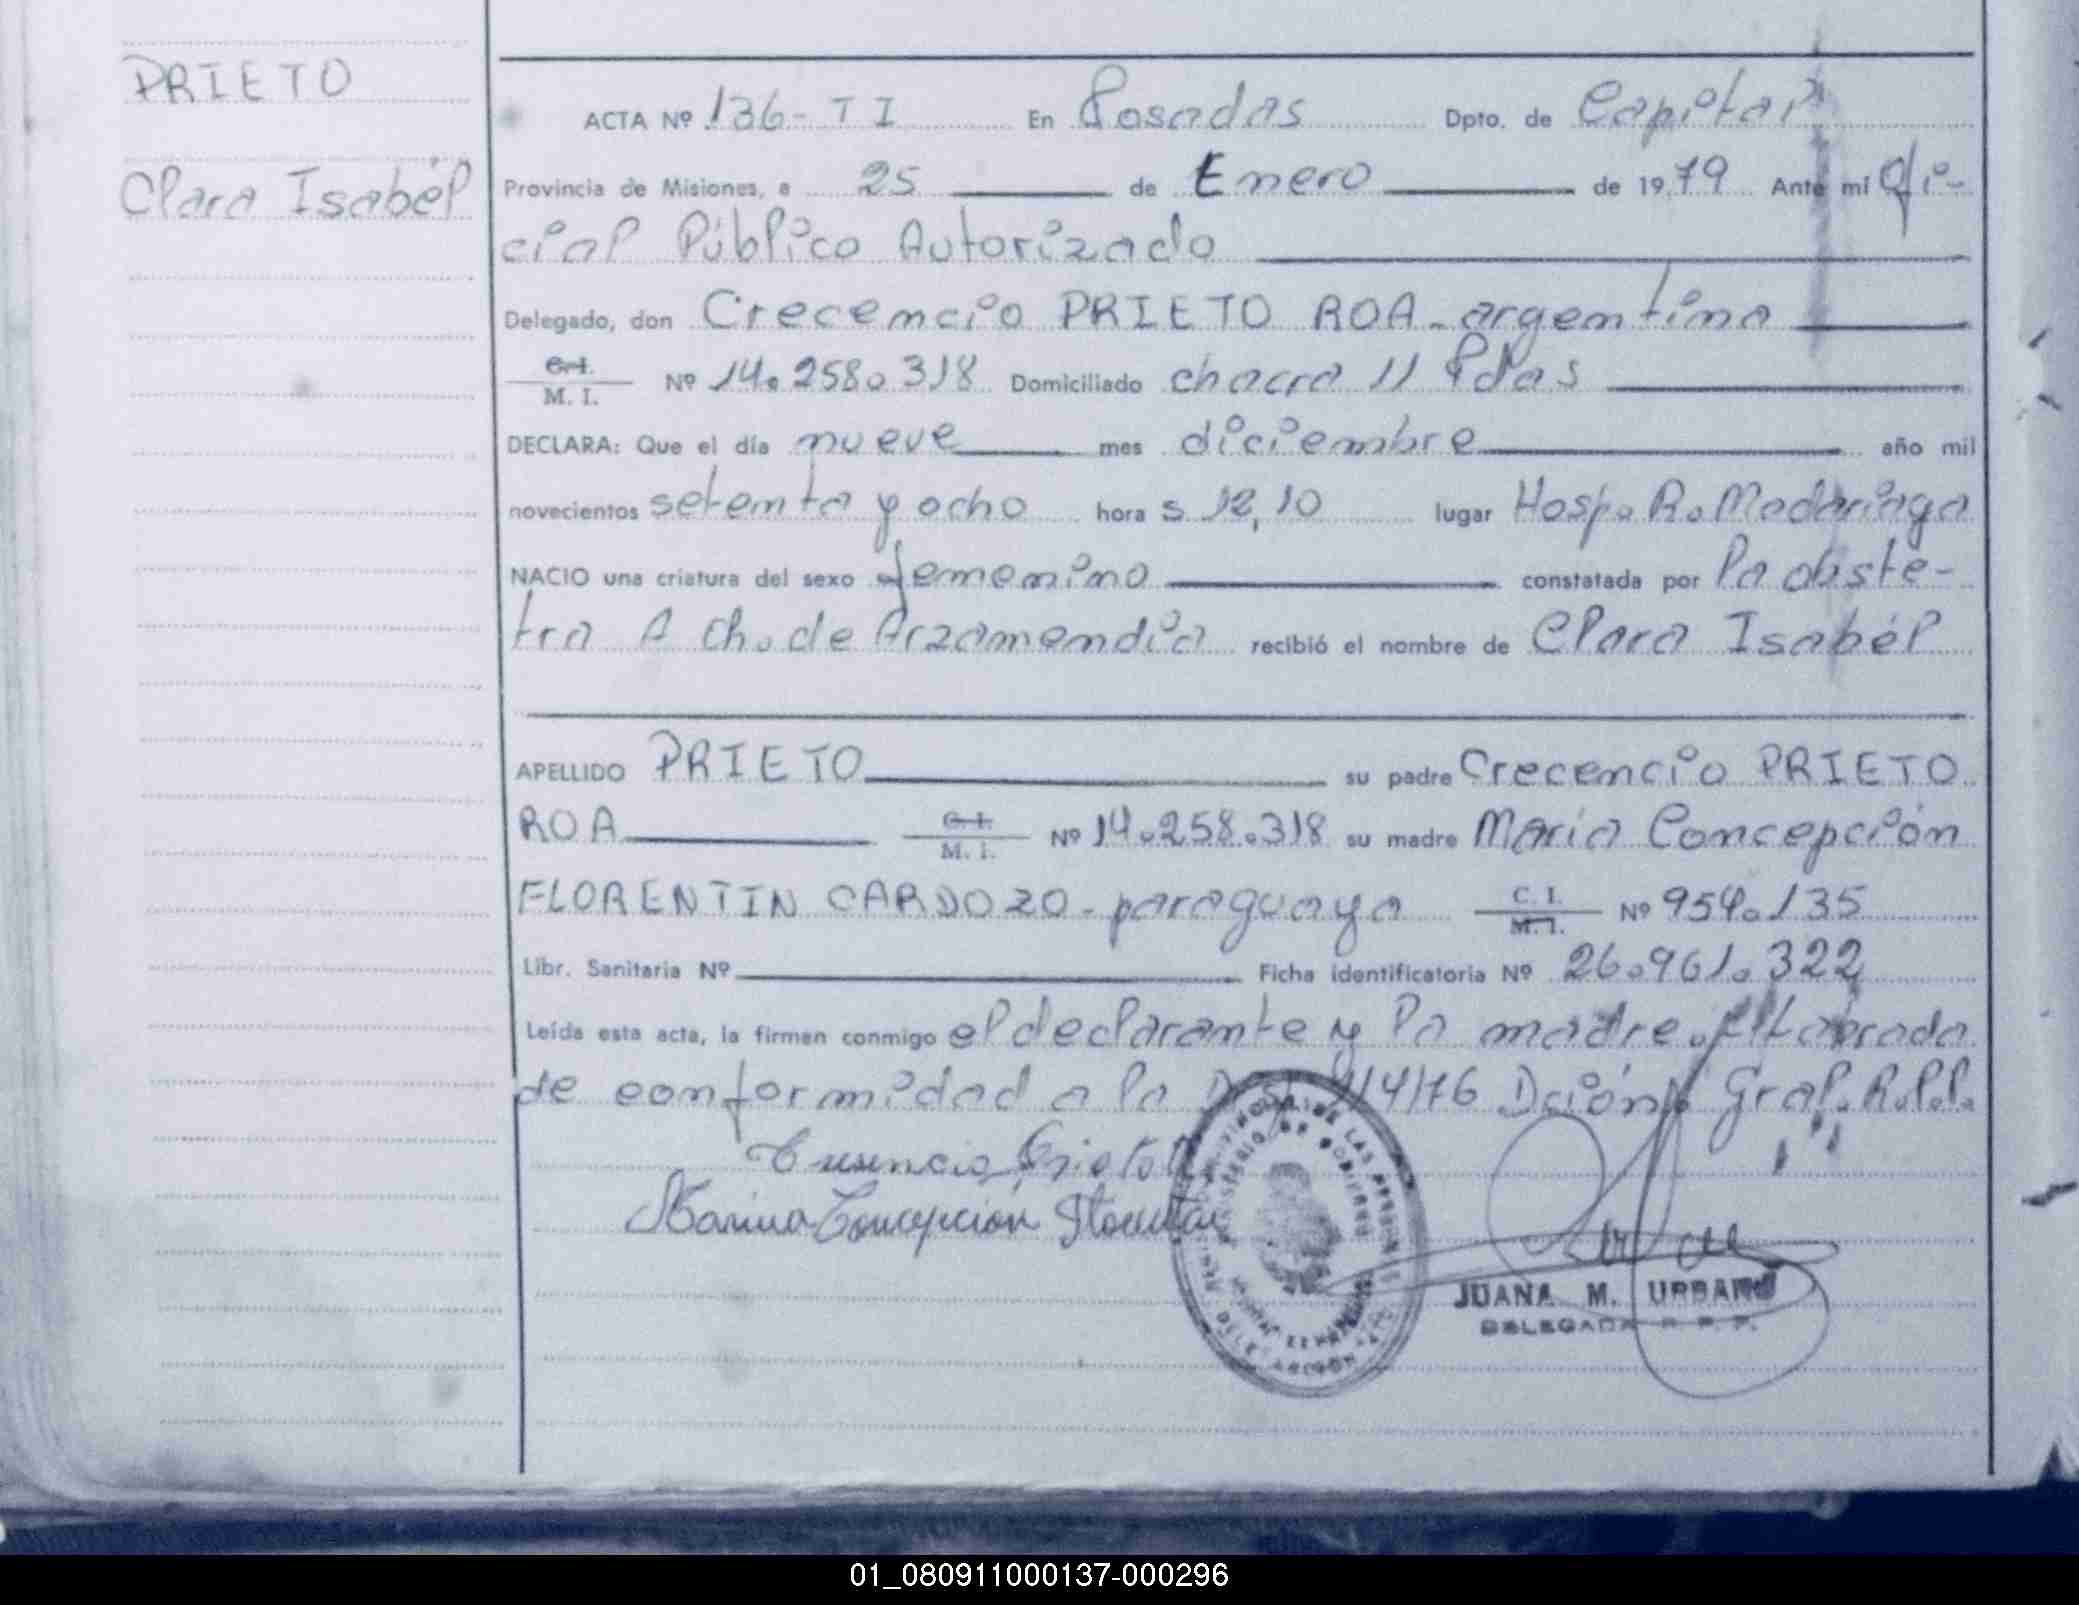 PRIETO
Clara Isabél
ACTA Nº 136- T I En Posadas Dpto. de Capital
Provincia de Misiones, a 25 de Enero de 1979 Ante mi Ofi-
cial Público Autorizado
Delegado, don Crecencio PRIETO ROA - argentino
C.I. M. I. Nº 14.258.318 Domiciliado chacra 11 Pdas
DECLARA: Que el día nueve mes diciembre año mil
novecientos setenta y ocho hora s 12,10 lugar Hosp. R. Madariaga
NACIO una criatura del sexo femenino constatada por la obste-
tra A Ch. de Arzamendia recibió el nombre de Clara Isabél
APELLIDO PRIETO su padre Crecencio PRIETO
ROA C.I. M. I. Nº 14.258.318 su madre María Concepción
FLORENTIN CARDOZO - paraguaya C. I. M. I. Nº 954.135
Libr. Sanitaria Nº Ficha identificatoria Nº 26.961.322
Leída esta acta, la firman conmigo el declarante y la madre. labrada
de conformidad a la 9/4/76 Dción Gral. R.P.P.
Prieto
Concepción
JUANA M. URBANO
DELEGADA R. P. P.
01_080911000137-000296